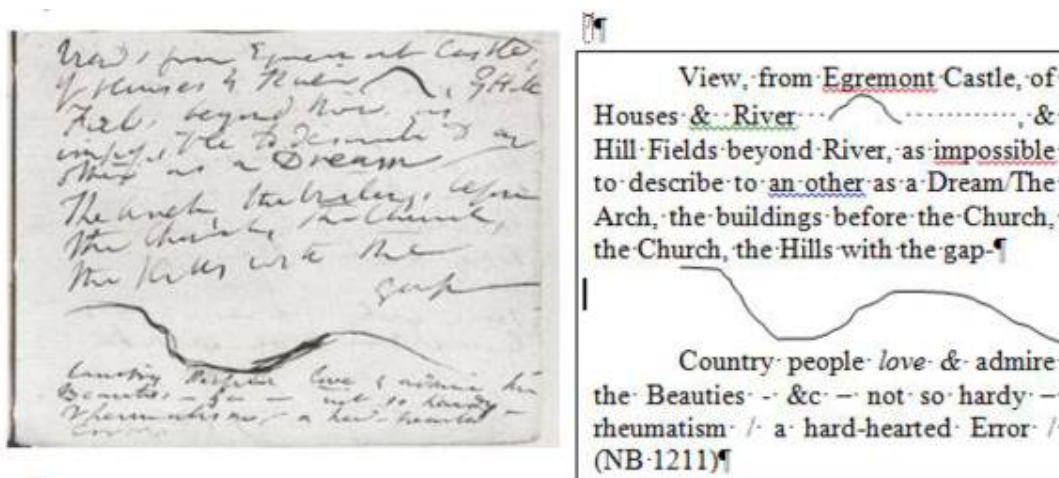 View, from Egremont Castle,
of Houses & River , & Hill
Fields beyond River, as
impossible to describe to an
other as a Dream
The Arch, the buildings before
the Church, the Church,
the Hills with the
gap—
Country People love & admire
Beauties - &c — not so hardy —
rheumatism / a hard-hearted
View, from Egremont Castle, of
Houses & River , &
Hill Fields beyond River, as impossible
to describe to an other as a Dream/The
Arch, the buildings before the Church,
the Church, the Hills with the gap-¶
Country people love & admire
the Beauties - &c – not so hardy –
rheumatism / a hard-hearted Error /
(NB 1211)¶